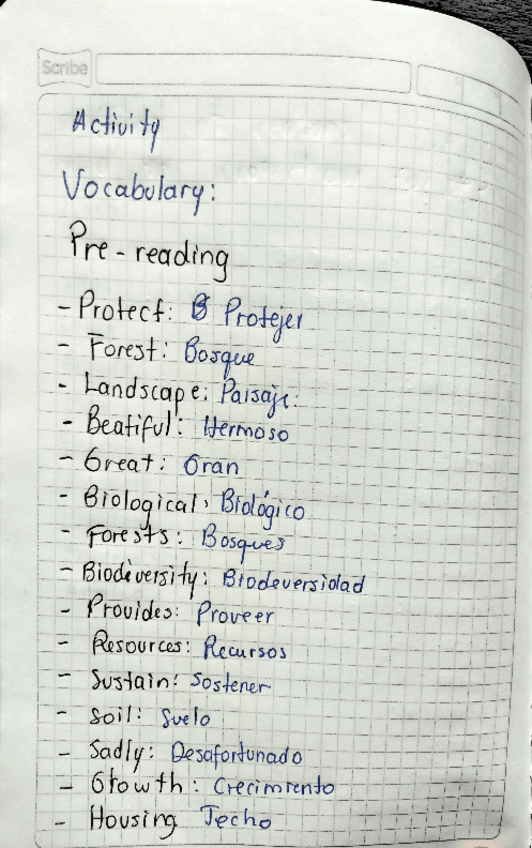 Scribe
Activity
Vocabulary:
Pre-reading
- Protect: Protejer
- Forest: Bosque
- Landscape: Paisaje.
- Beatiful: Hermoso
- Great: Gran
- Biological: Biológico
- Forests: Bosques
- Biodiversity: Biodeversidad
- Provides: Proveer
- Resources: Recursos
- Sustain: Sostener
- Soil: Suelo
- Sadly: Desafortunado
- Growth: Crecimiento
- Housing Techo